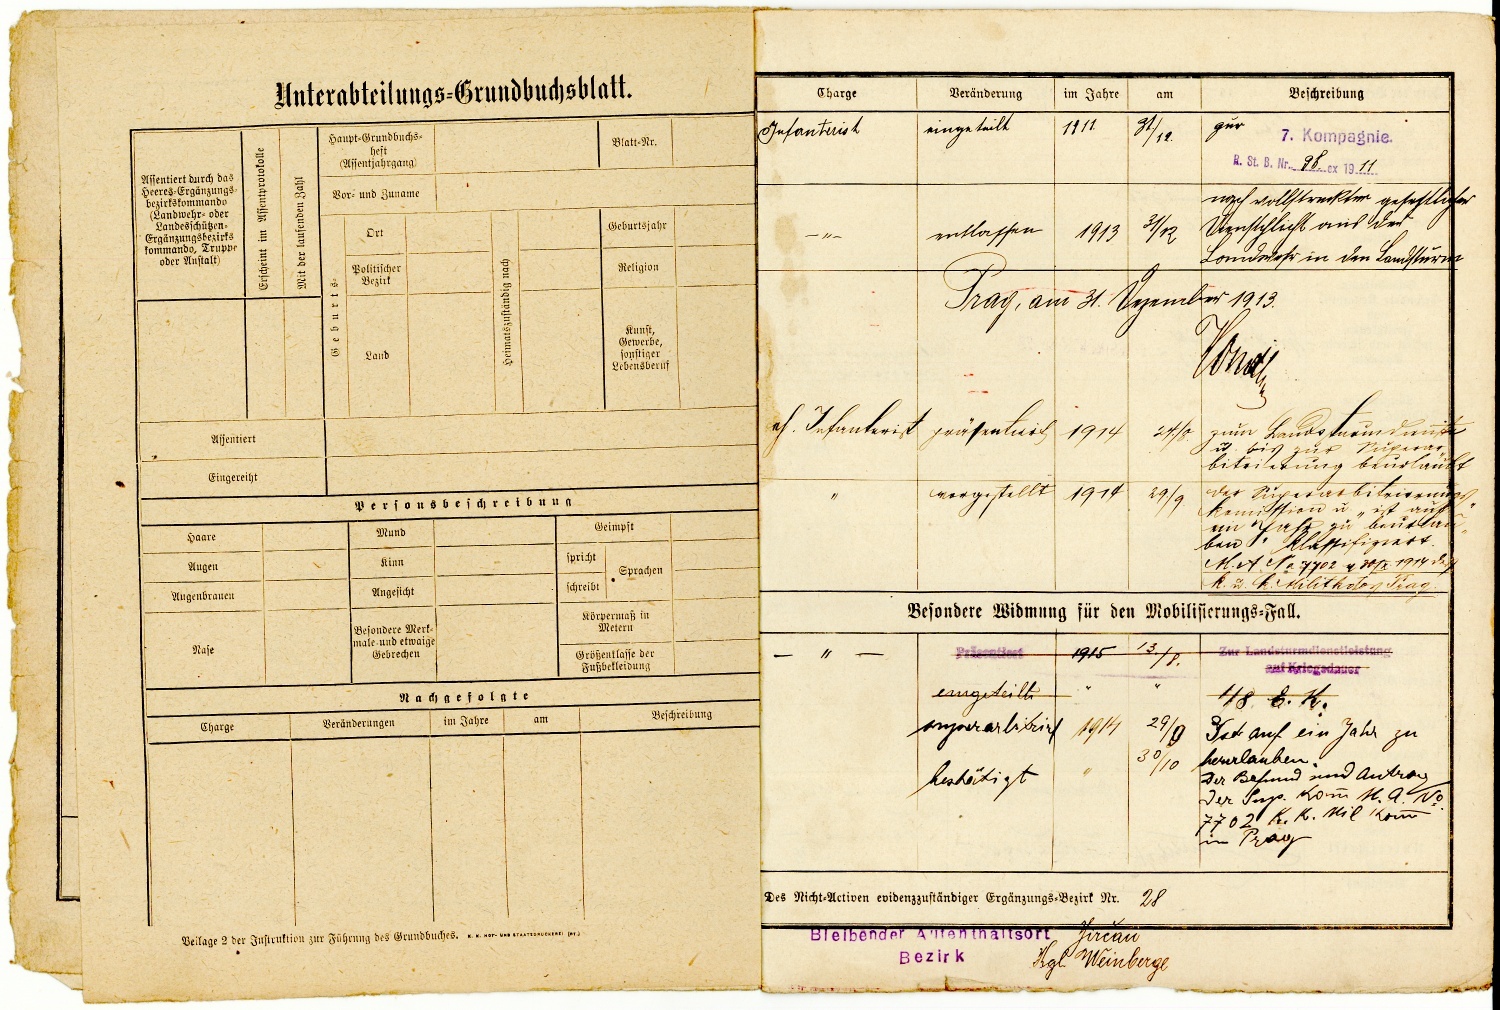 Unterabteilungs-Grundbuchsblatt.
Assentiert durch das
Heeres-Ergänzungs-
bezirkskommando
(Landwehr- oder
Landesschützen-
Ergänzungsbezirks
kommando, Truppe
oder Anstalt)
Erscheint im Assentprotokolle
Mit der laufenden Zahl
Haupt-Grundbuchs-
heft
(Assentjahrgang)
Blatt-Nr.
Vor- und Zuname
Geburts-
Ort
Politischer
Bezirk
Land
Heimatszuständig nach
Geburtsjahr
Religion
Kunst,
Gewerbe,
sonstiger
Lebensberuf
Assentiert
Eingereiht
Personsbeschreibung
Haare
Augen
Augenbrauen
Nase
Mund
Kinn
Angesicht
Besondere Merk-
male und etwaige
Gebrechen
Geimpft
spricht
schreibt
Sprachen
Körpermaß in
Metern
Größenklasse der
Fußbekleidung
Nachgefolgte
Charge Veränderungen im Jahre am Beschreibung
Beilage 2 der Instruktion zur Führung des Grundbuches. K. K. HOF- UND STAATSDRUCKEREI
Charge Veränderung im Jahre am Beschreibung
Infanterist eingeteilt 1911 31/12. zur 7. Kompagnie.
R. St. B. Nr. 98 ex 1911
nach vollstreckter gesetzlicher
—„— entlassen 1913 31/12 Dienstpflicht aus der
Landwehr in den Landsturm
Prag, am 31. Dezember 1913.
Infanterist präsentiert 1914 24/8 zum Landsturmdienste
u. bis zur Superar-
bitrierung beurlaubt
„ vorgestellt 1914 29/9 der Superarbitrierungs
Komission u „ist auf
ein Jahr zu beurlau-
ben“ klassifiziert.
M. A. No 7702 v 30/X 1914 des
k. u. k. Milit Prag.
Besondere Widmung für den Mobilisierungs-Fall.
— „ — Präsentiert 1915 13./8. Zur Landsturmdienstleistung
auf Kriegsdauer
eingeteilt „ „ 48 E. K.
superarbitriert 1914 29/9 Ist auf ein Jahr zu
beurlauben.
bestätigt „ 30/10 Der Befund und Antrag
der Sup. Kom̅ M. A. No
7702 K. K. Mil Kom̅
in Prag
Des Nicht-Activen evidenzzuständiger Ergänzungs-Bezirk Nr. 28
Bleibender Aufenthaltsort Jirčan
Bezirk Kgl. Weinberge